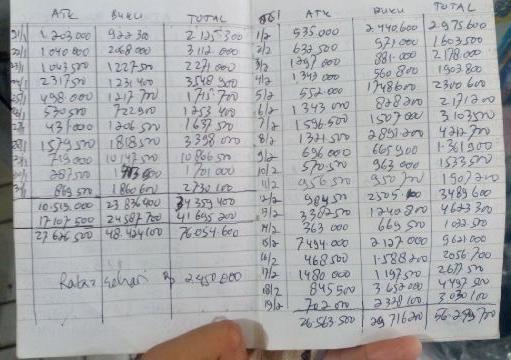 ATK BUKU TOTAL
21/1 1.203.000 922.300 2.125.300
1.040.000 2.068.000 3.112.000
1.043.500 1.227.500 2.271.000
2.317.500 1.231.400 3.548.900
498.000 1.217.700 1.715.700
530.500 722.900 1.253.400
431.000 1.206.500 1.637.500
1.579.500 1.818.500 3.398.000
719.000 10.147.500 10.866.500
287.500 1.701.000
869.500 1.860.600 2.730.100
10.519.000 23.836.400 34.359.400
17.107.500 24.587.700 41.695.200
27.626.500 48.424.100 76.054.600
Rata2 sehari Rp 2.450.000
ATK BUKU TOTAL
1/2 535.000 2.440.600 2.975.600
2/2 632.500 971.000 1.603.500
3/2 1.297.000 881.000 2.178.000
4/2 1.343.000 560.800 1.903.800
5/2 552.000 1.748.600 2.300.600
6/2 1.343.000 828.200 2.171.200
7/2 1.596.500 1.507.000 3.103.500
8/2 1.321.500 2.891.200 4.212.700
9/2 696.000 665.900 1.361.900
10/2 570.500 963.000 1.533.500
11/2 956.500 950.700 1.907.200
12/2 984.500 2.505.100 3.489.600
13/2 3.382.500 1.240.800 4.623.300
14/2 363.000 669.500 1.032.500
15/2 7.494.000 2.127.000 9.621.000
16/2 468.500 1.588.200 2.056.700
17/2 1.480.000 1.197.500 2.677.500
18/2 845.500 3.652.000 4.497.500
19/2 702.000 2.328.100 3.030.100
26.563.500 29.716.200 56.279.700